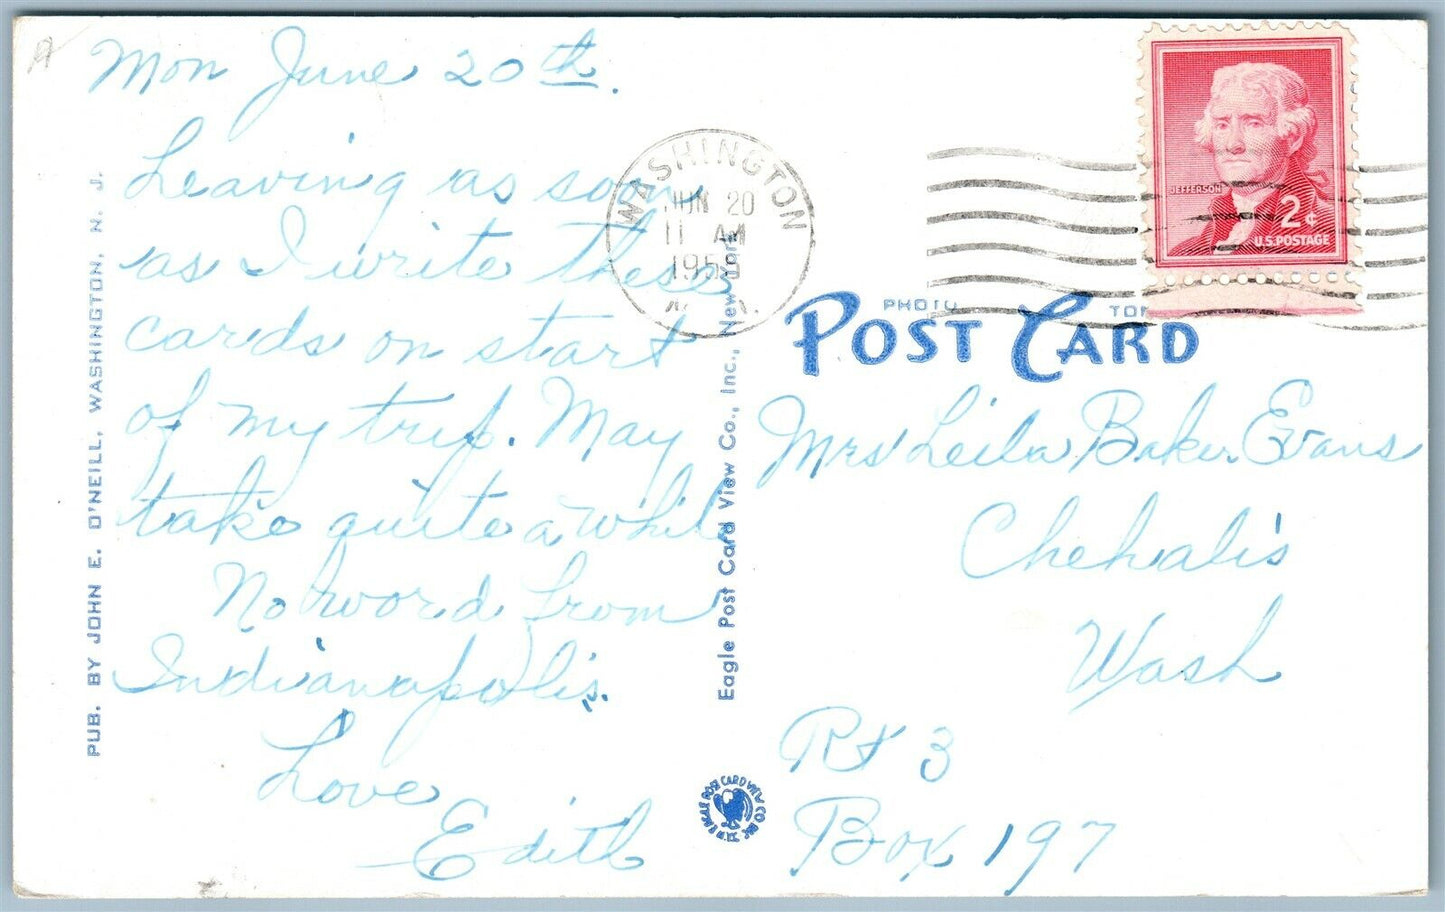 Mon June 20th.
Leaving as soon
as I write these
cards on start
of my trip. May
take quite a while
No word from
Indianapolis.
Love
Edith
PUB. BY JOHN E. O'NEILL, WASHINGTON, N. J.
Eagle Post Card View Co., Inc., New York
WASHINGTON
JUN 20
11 AM
N. J.
JEFFERSON
2¢
U.S. POSTAGE
PHOTO
POST CARD
Mrs Leila Baker Evans
Chehalis
Wash
Rt 3
Box 197